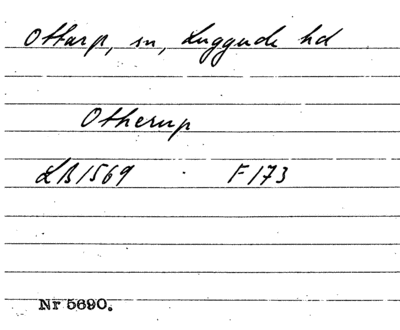 Ottarp, sn, Luggude hd
Otherup
LB1569 · F173
Nr 5690.